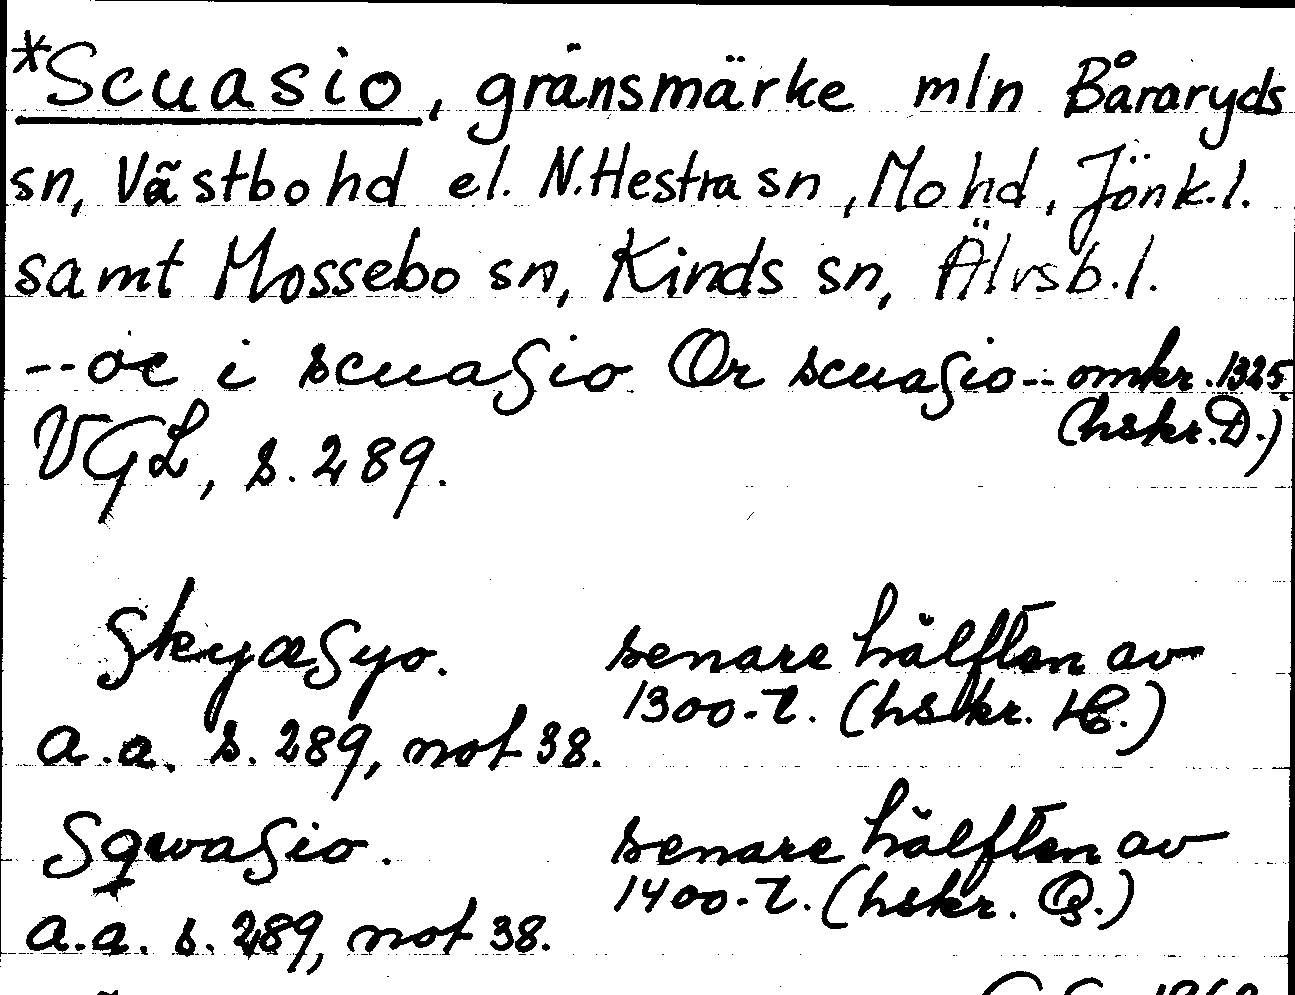 *Scuasio, gränsmärke mln Båraryds
sn, Västbo hd el. N. Hestra sn, Mo hd, Jönk.l.
samt Mossebo sn, Kinds sn, Älvsb.l.
--oc i scuasio Or scuasio-- omkr. 1325.
VGL, s. 289. (hskr. D.)
Skyæsyo. senare hälften av
1300-t. (hskr. H.)
a.a. s. 289, not 38.
Sqwasio. senare hälften av
1400-t. (hskr. Q.)
a.a. s. 289, not 38.